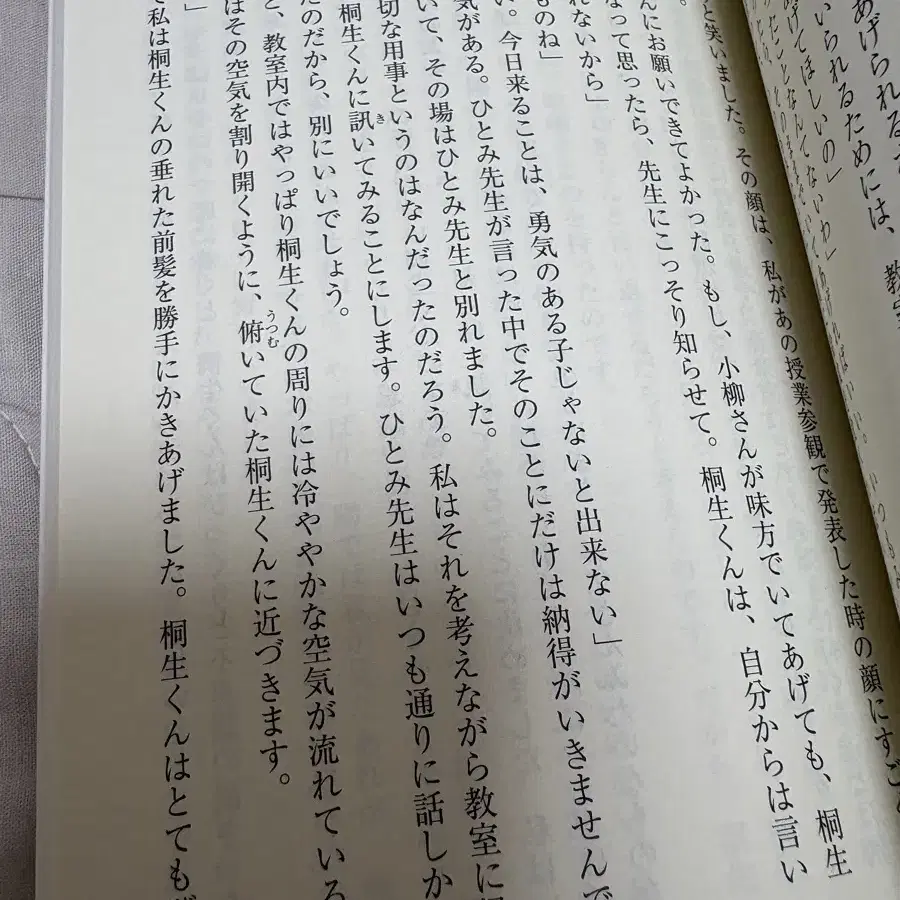 いられるためには、教
と笑いました。その顔は、私があの授業参観で発表した時の顔にすご
んにお願いできてよかった。もし、小柳さんが味方でいてあげても、桐生
なって思ったら、先生にこっそり知らせて。桐生くんは、自分からは言い
れないから」
ものね」
今日来ることは、勇気のある子じゃないと出来ない」
気がある。ひとみ先生が言った中でそのことにだけは納得がいきませんで
いて、その場はひとみ先生と別れました。
切な用事というのはなんだったのだろう。私はそれを考えながら教室に
桐生くんに訊いてみることにします。ひとみ先生はいつも通りに話しか
たのだから、別にいいでしょう。
と、教室内ではやっぱり桐生くんの周りには冷ややかな空気が流れている
はその空気を割り開くように、俯いていた桐生くんに近づきます。
」
て私は桐生くんの垂れた前髪を勝手にかきあげました。桐生くんはとても